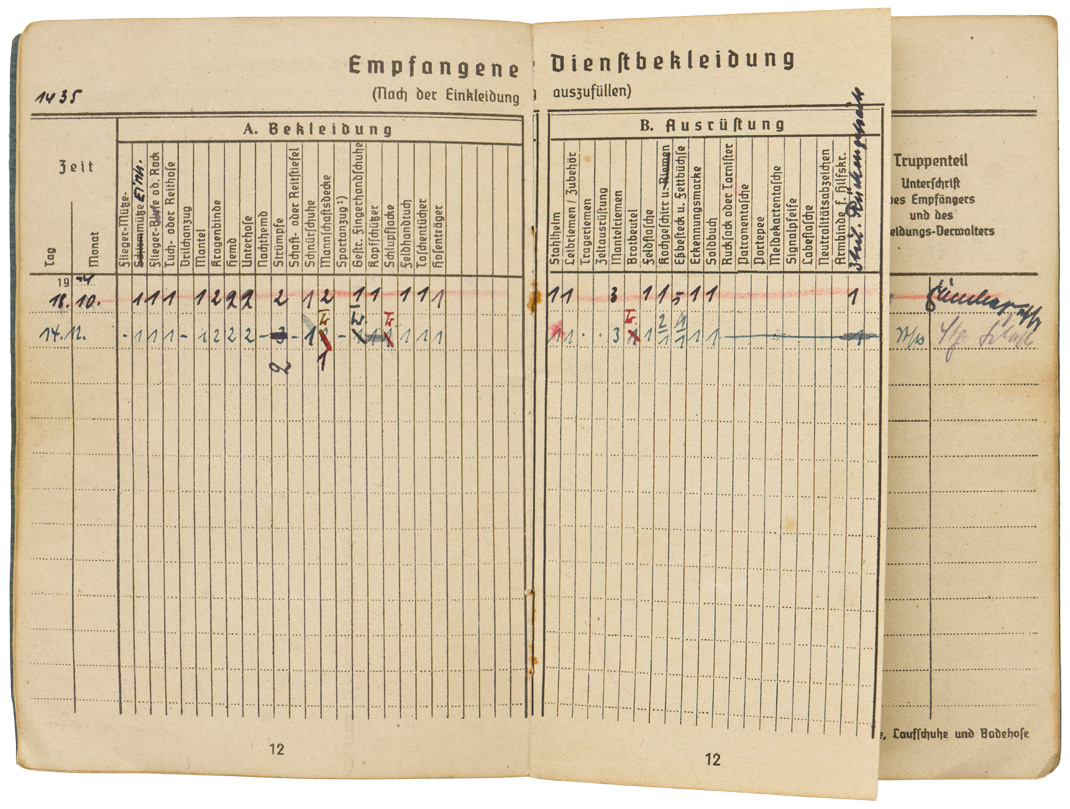 Empfangene Dienstbekleidung
(Nach der Einkleidung auszufüllen)
1435
A. Bekleidung
B. Ausrüstung
Zeit
Truppenteil
Unterschrift
des Empfängers
und des
eidungs-Verwalters
Tag
Monat
Flieger-Mütze
Schirmmütze Einh.
Flieger-Bluse od. Rock
Tuch- oder Reithose
Drillichanzug
Mantel
Kragenbinde
Hemd
Unterhose
Nachthemd
Strümpfe
Schaft- oder Reitstiefel
Schnürschuhe
Mannschaftsdecke
Sportanzug ¹)
Gestr. Fingerhandschuhe
Kopfschützer
Schlupfjacke
Feldhandtuch
Taschentücher
Hosenträger
Stahlhelm
Leibriemen / Zubehör
Trageriemen
Zeltausrüstung
Mantelriemen
Brotbeutel
Feldflasche
Kochgeschirr u. Riemen
Eßbesteck u. Fettbüchse
Erkennungsmarke
Soldbuch
Rucksack oder Tornister
Patronentasche
Portepee
Meldekartentasche
Signalpfeife
Labeflasche
Neutralitätsabzeichen
Armbinde f. Hilfskr.
19 44
18. 10. 1 1 1 1 2 2 2 2 2 1 2 1 1 1 1 1 1 1 3 1 1 5 1 1 1
14. 12. - 1 1 1 - 1 2 2 2 2 - 1 - 1 1 1 1 · · 3 1 1 1 1 1
2 1
12
12
e, Laufschuhe und Badehose